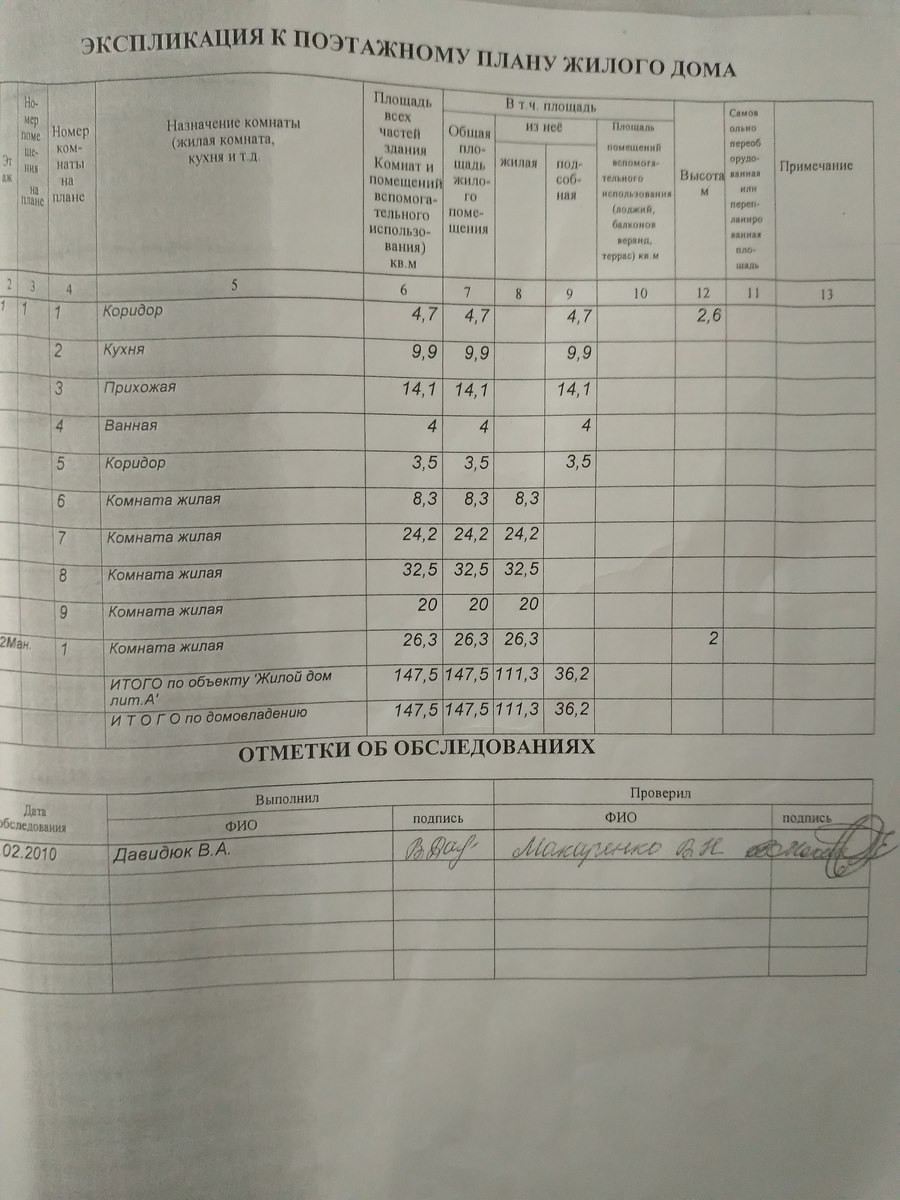 ЭКСПЛИКАЦИЯ К ПОЭТАЖНОМУ ПЛАНУ ЖИЛОГО ДОМА
Эт
аж
Но-
мер
поме
ще-
ния
на
плане
Номер
ком-
наты
на
плане
Назначение комнаты
(жилая комната,
кухня и т.д.
Площадь
всех
частей
здания
Комнат и
помещений
вспомога-
тельного
использо-
вания)
кв.м
В т.ч. площадь
Общая
пло-
щадь
жило-
го
поме-
щения
из неё
жилая
под-
соб-
ная
Площадь
помещений
вспомога-
тельного
использования
(лоджий,
балконов
веранд,
террас) кв.м
Высота
м
Самов
ольно
переоб
орудо-
ванная
или
переп-
ланиро
ванная
пло-
щадь
Примечание
2 3 4 5 6 7 8 9 10 12 11 13
1 1 1 Коридор 4,7 4,7 4,7 2,6
2 Кухня 9,9 9,9 9,9
3 Прихожая 14,1 14,1 14,1
4 Ванная 4 4 4
5 Коридор 3,5 3,5 3,5
6 Комната жилая 8,3 8,3 8,3
7 Комната жилая 24,2 24,2 24,2
8 Комната жилая 32,5 32,5 32,5
9 Комната жилая 20 20 20
2Ман. 1 Комната жилая 26,3 26,3 26,3 2
ИТОГО по объекту 'Жилой дом
лит.А' 147,5 147,5 111,3 36,2
И Т О Г О по домовладению 147,5 147,5 111,3 36,2
ОТМЕТКИ ОБ ОБСЛЕДОВАНИЯХ
Дата
обследования
Выполнил Проверил
ФИО подпись ФИО подпись
.02.2010 Давидюк В.А. Макаренко В.Н